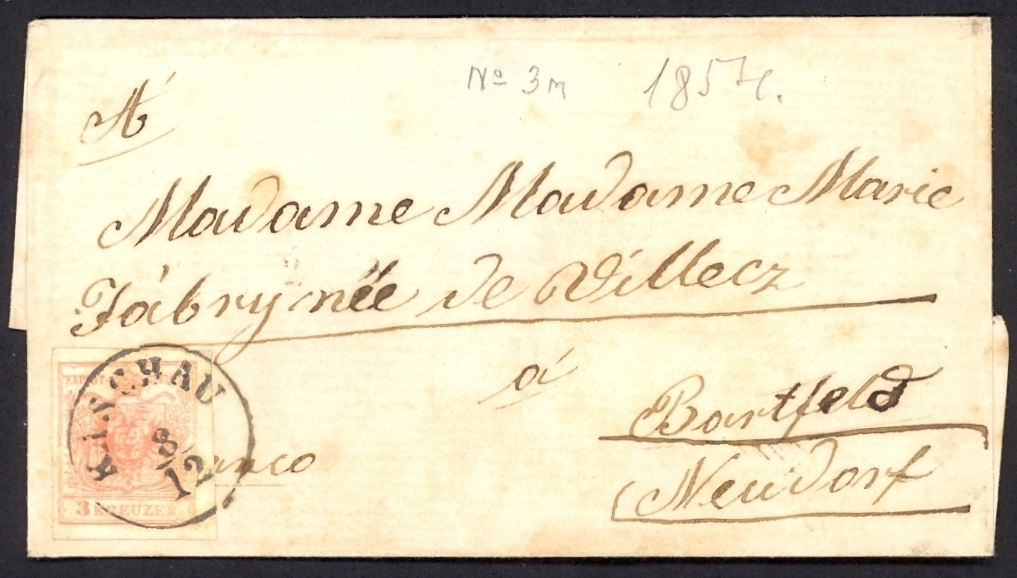 No 3m 1857.
A
Madame Madame Marie
Fábry née de Villecz
á
Bartfeld
Neudorf
KASCHAU
8/12
3 KREUZER